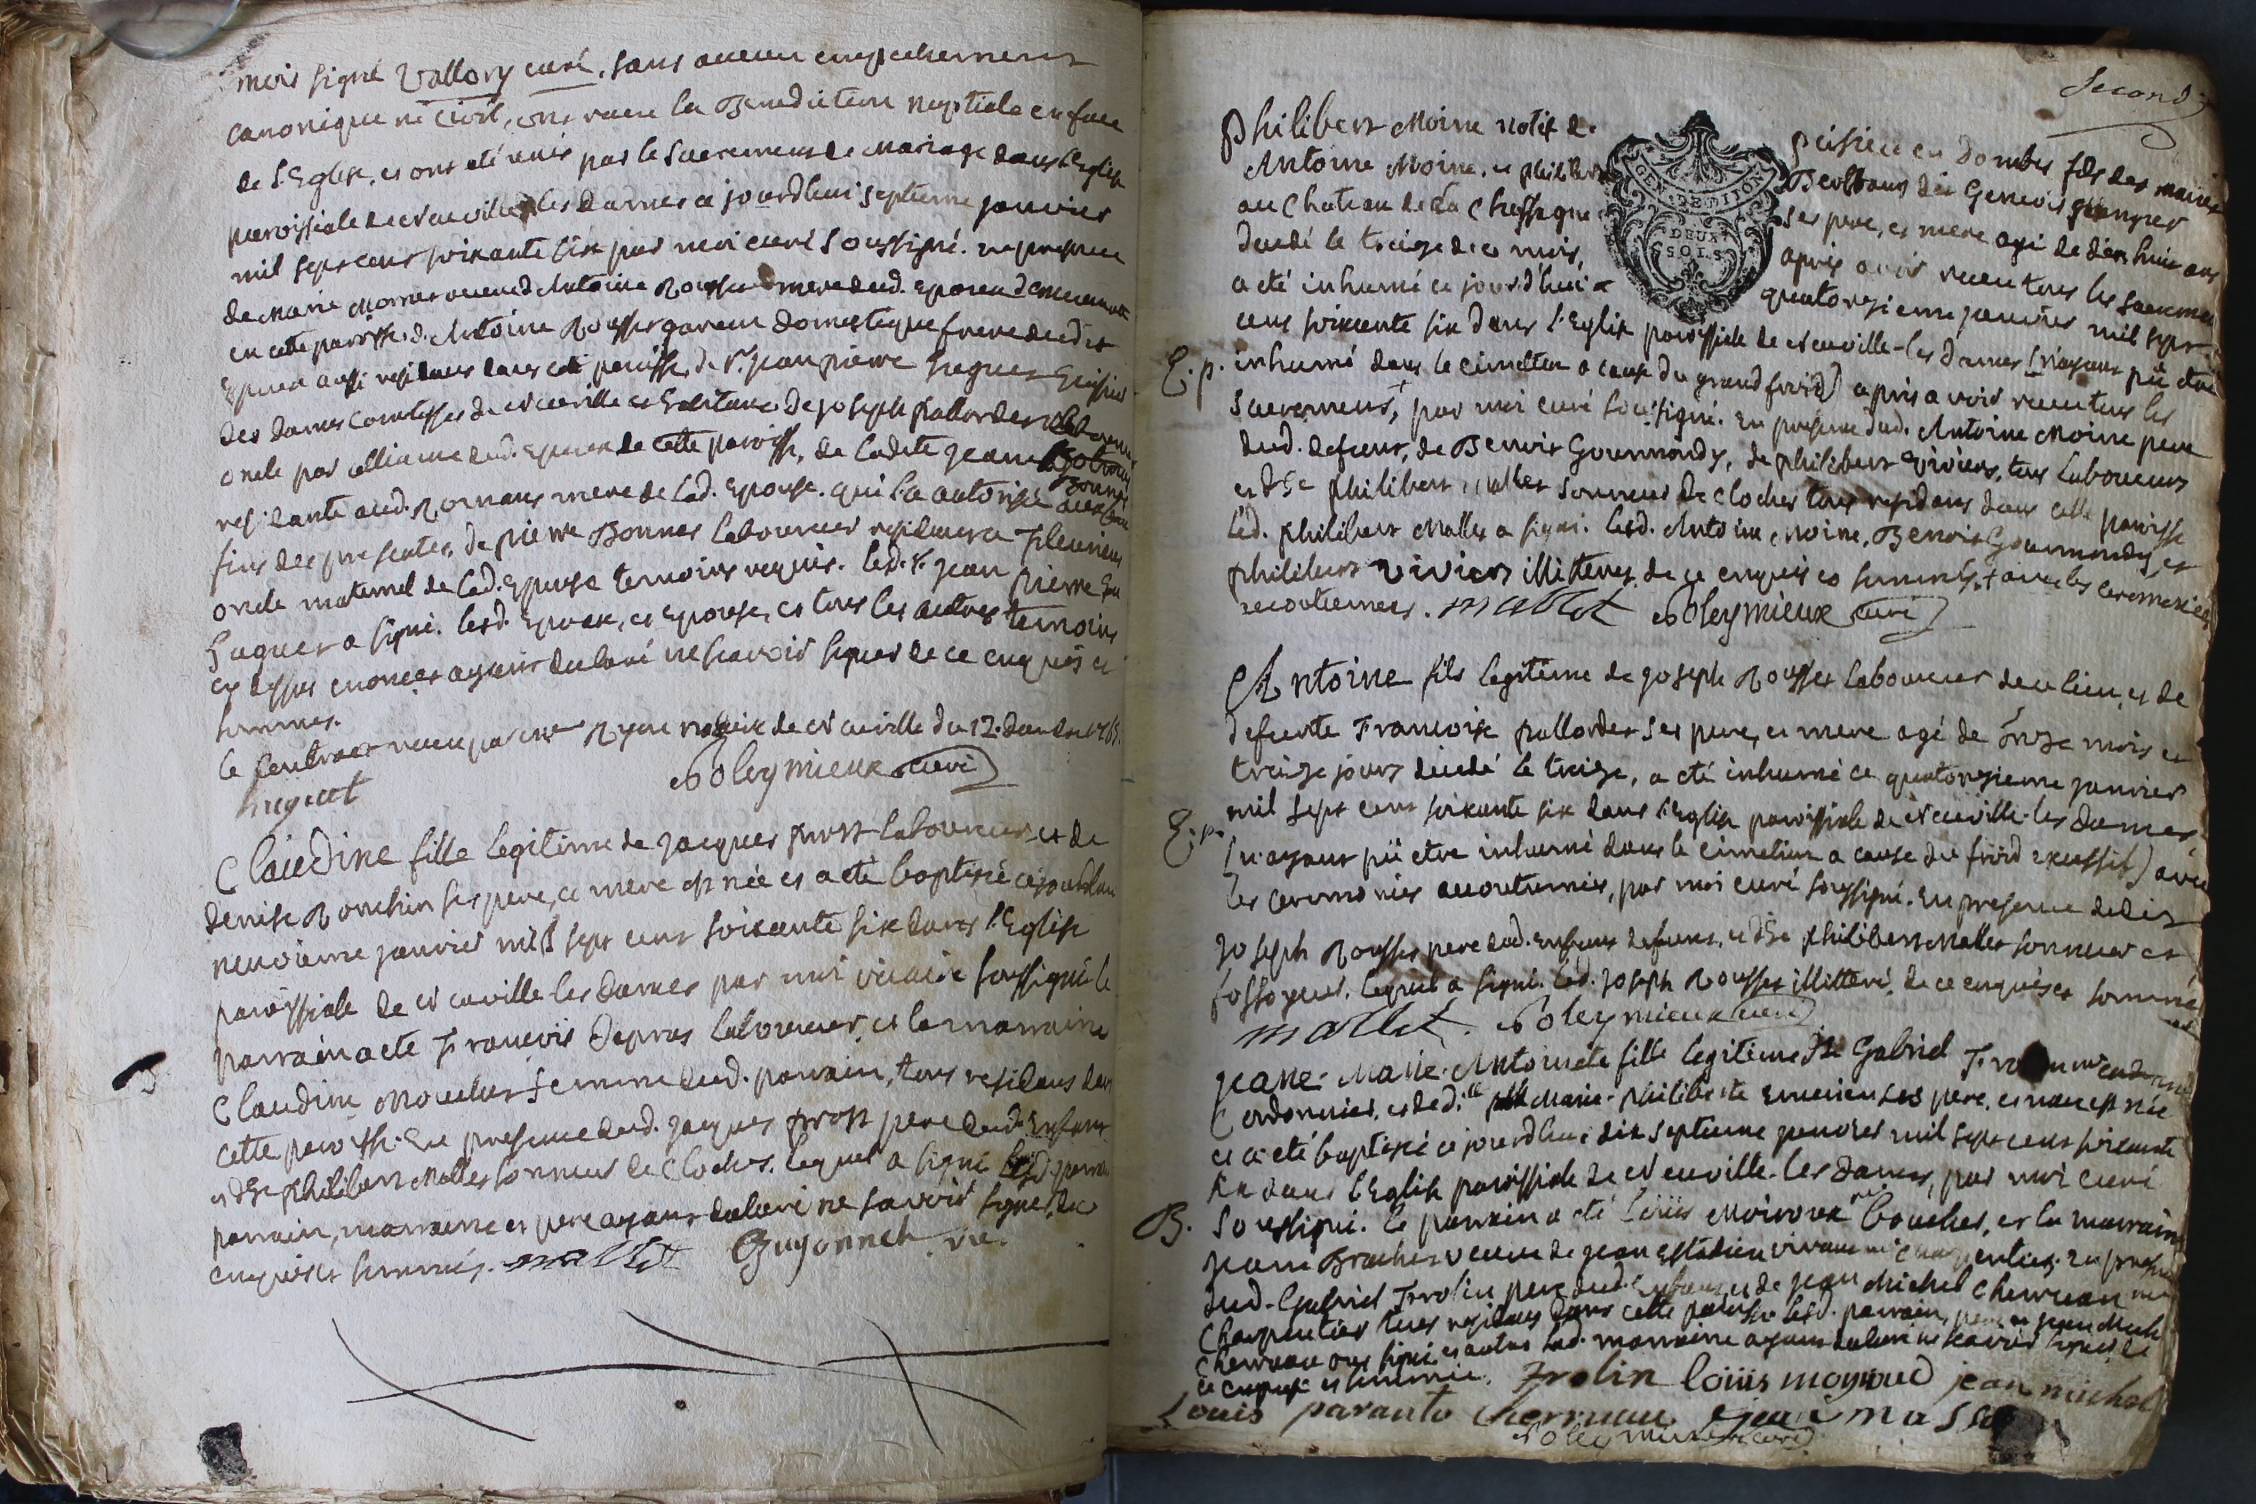 mois signé Vallory curé, sans aucun empechement
canonique ni civil, ont recu la Benediction nuptiale en face
de l'Eglise, et ont eté unis par le sacrement de Mariage dans l'Eglise
paroissiale de Neuville les dames ce jourd'hui septieme janvier
mil sept cent soixante six par moi curé soussigné. en presence
de Marie veuve d'Antoine Rousset mere dud. Epoux demeurant
en cette paroisse, d'Antoine Rousset garcon domestique frere dudit
Epoux aussi residant dans cette paroisse, de Sr. Jean pierre huguet
des dames Comtesses de Neuville de joseph pallordet
oncle par alliance dud. Epoux de cette paroisse, de ladite jeane
residante aud. Romans mere de lad. Epouse. qui l'a autorisée
fins des presentes, de pierre Bonnet laboureur residant a fleurieux
oncle maternel de lad. Epouse temoins requis. led. Sr. jean pierre
huguet a signé. lesd. Epoux, et Epouse, et tous les autres temoins
cy dessus enoncés ayant declaré ne scavoir signer de ce enquis et
sommés.
le Contract recu par me Ryon notaire de Neuville du 12. 1765.
huguet Noleymieux curé
Claudine fille legitime de jacques prost laboureur et de
denise Ronchin ses pere, et mere est née et a eté baptisée ce jourd'hui
neuvieme janvier mil sept cent soixante six dans l'Eglise
paroissiale de Neuville les dames par moi vicaire soussigné le
parrain a eté Francois depras laboureur, et la marraine
Claudine femme dud. parrain, tous residans dans
cette paroisse. En presence dud. jacques prost pere dud. Enfant
et de philibert Mallet sonneur de cloches. lequel a signé
parrain, marraine et pere ayant declaré ne savoir signer, de ce
enquis et sommés. mallet Guyonnet vic.
Second
GEN. DE DIJON
DEUX
SOLS
Philibert Moine natif de perisieu en Dombes fils des mariés
Antoine Moine, et philiberte Berthaud du Genevois grangers
au Chateau de la Chassagne ses pere, et mere agé de dix huit ans
decedé le treize de ce mois, apres avoir recu tous les sacremens
a eté inhumé ce jourd'hui quatorzieme janvier mil sept
cent soixante six dans l'Eglise paroissiale de Neuville-les dames (n'ayant pû etre
E. p. inhumé dans le cimetiere a cause du grand froid) apris avoir recu tous les
sacremens, + par moi curé soussigné. En presence dud. Antoine Moine pere
dud. defunt, de Benoit Gourmondy, de philibert viviers, tous laboureurs
et de philibert mallet sonneur de cloches tous residans dans cette paroisse
led. philibert Mallet a signé. lesd. Antoine Moine, Benoit Gourmondy, et
philibert viviers illitterés, de ce enquis et sommés, + avec les ceremonies
accoutumees. mallet Noleymieux curé
Antoine fils legitime de joseph Rousset laboureur de ce lieu, et de
defunte Francoise pallordet ses pere, et mere agé de onze mois et
treize jours decedé le treize, a eté inhumé ce quatorzieme janvier
mil sept cent soixante six dans l'Eglise paroissiale de Neuville-les dames,
E. p. (n'ayant pû etre inhumé dans le cimetiere a cause du froid excessif) avec
les ceremonies accoutumées, par moi curé soussigné. En presence dudit
joseph Rousset pere dud. enfant defunt, et de philibert Mallet sonneur et
fossoyeur. lequel a signé. led. joseph Rousset illitteré, de ce enquis et sommé
mallet. Noleymieux curé
jeane-Marie-Antoinete fille legitime de Gabriel
Cordonnier, et de d.lle Marie-philiberte ses pere, et mere est née
et a eté baptisée ce jourd'hui dix septieme janvier mil sept cent soixante
six dans l'Eglise paroissiale de Neuville-les dames, par moi curé
B. soussigné. le parrain a eté loüis Moiroux boucher, et la marraine
jeane Brachet veuve de jean Estadieu vivant charpentier. En presence
dud. Gabriel Frolin pere dud. Enfant et de jean Michel Cherruau
Charpentier tous residans dans cette paroisse lesd. parrain, pere et jean Michel
Cherruau ont signé et autres lad. marraine ayant declaré ne scavoir signer de
ce enquise et sommée. Frolin loüis moyroud jean michel
Louis paranto Cherruau
Noleymieux curé